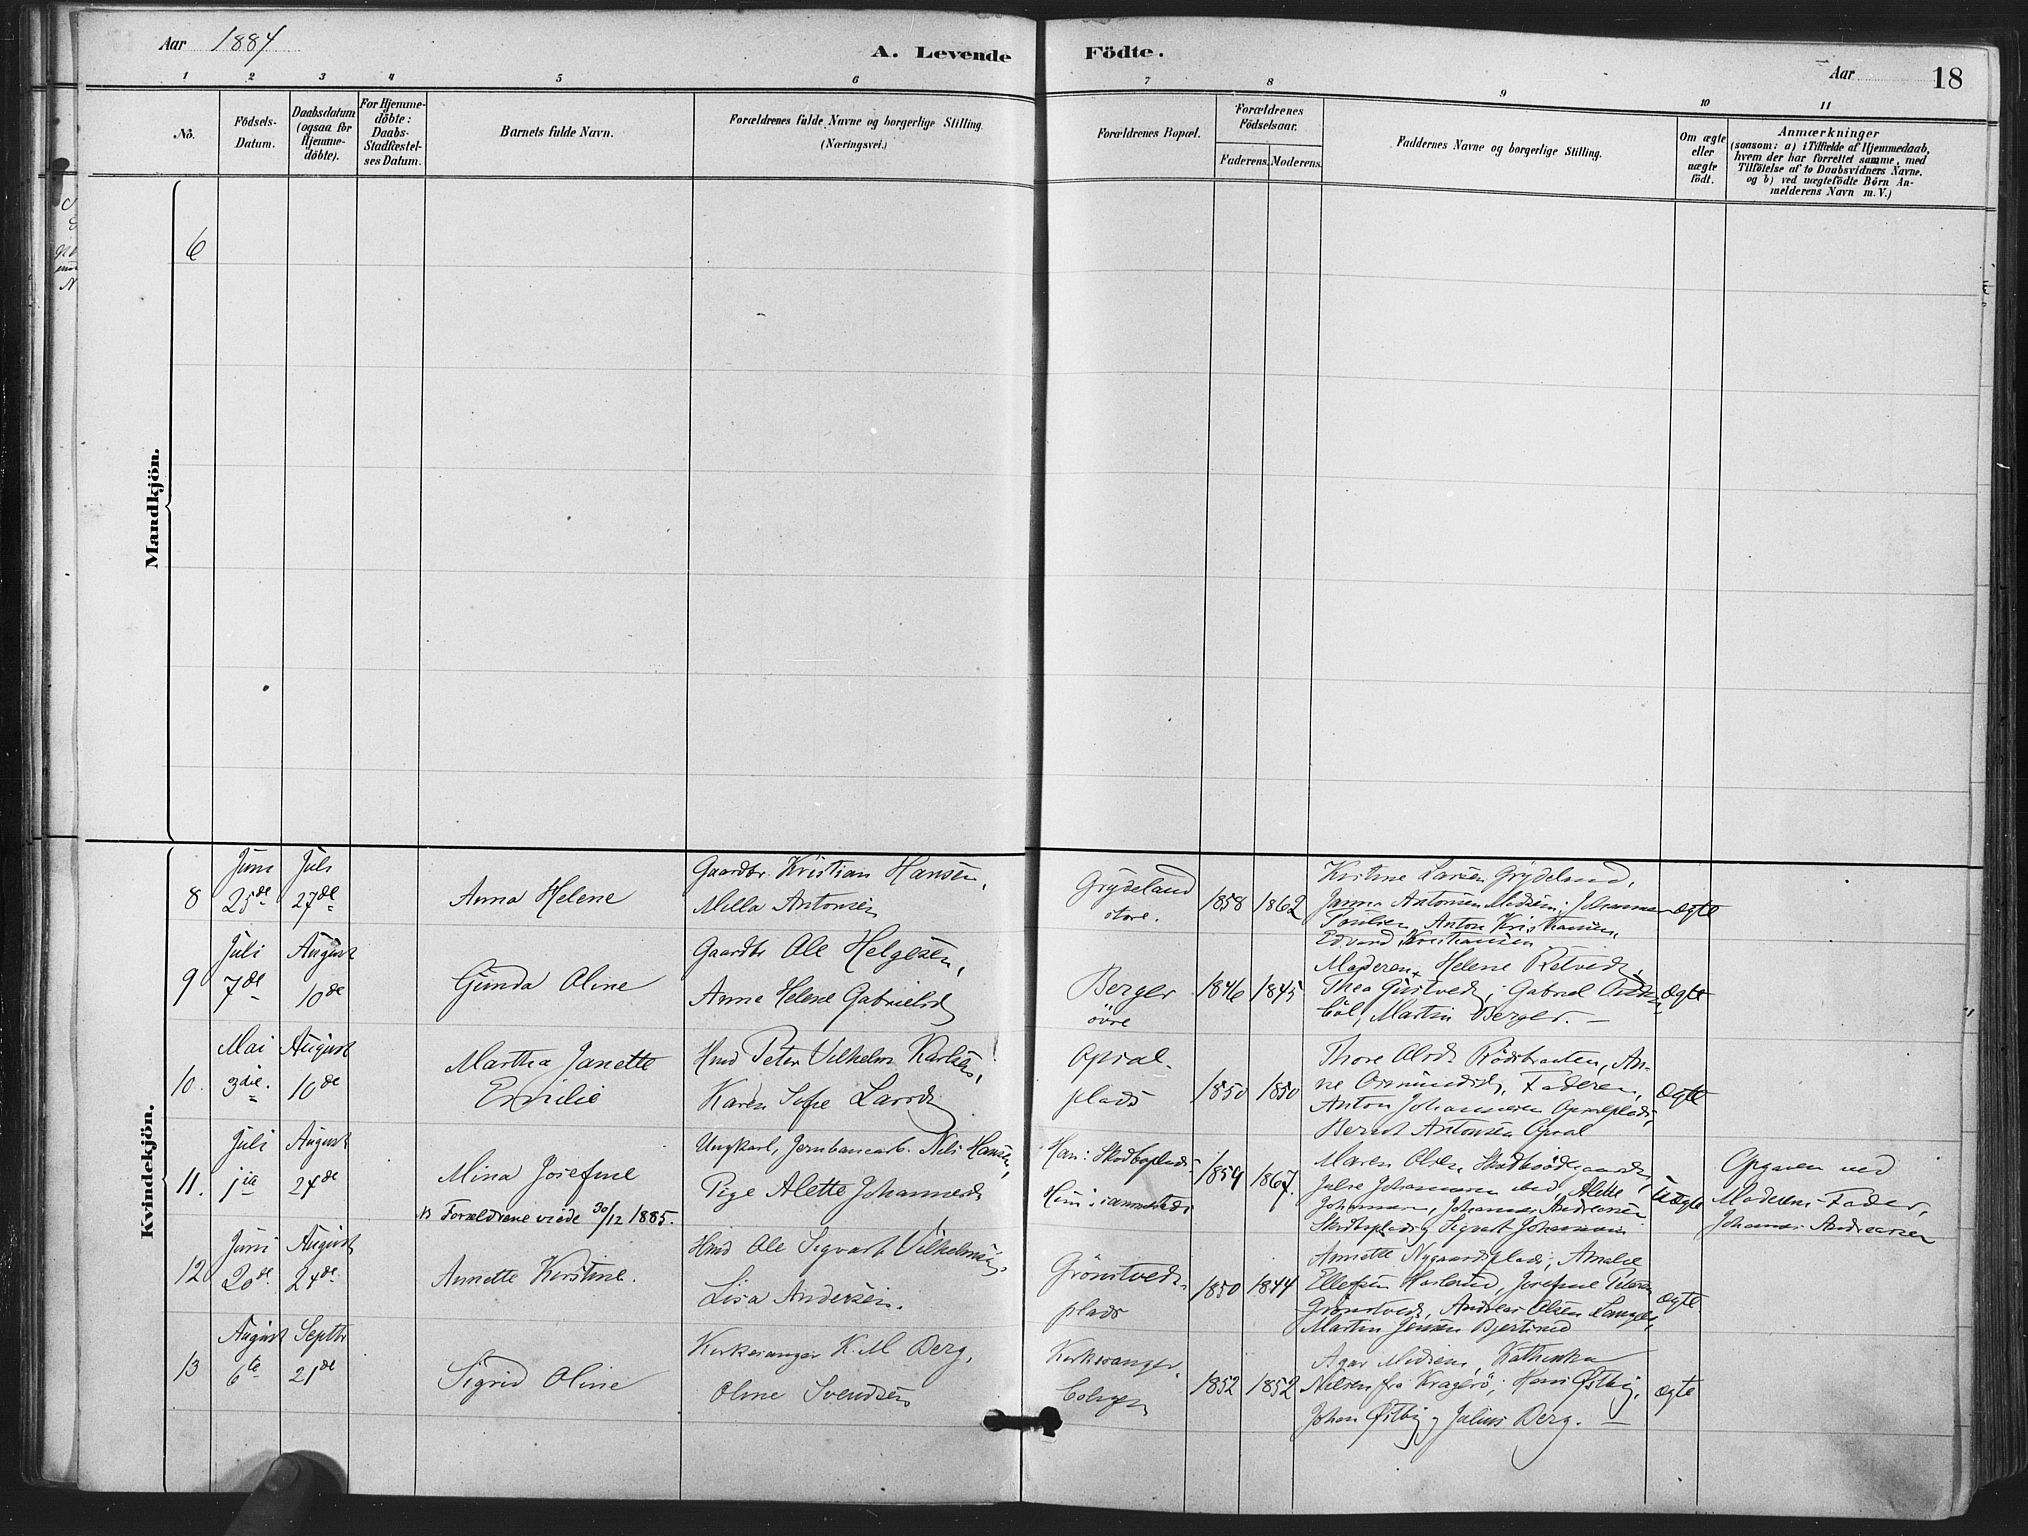 Aar 1884
A. Levende Födte.
Aar
18
1 2 3 4 5 6 7 8 9 10 11
No.
Födsels-
Datum.
Daabsdatum
(ogsaa for
Hjemme-
döbte).
For Hjemme-
döbte:
Daabs-
Stadfæstel-
ses Datum.
Barnets fulde Navn.
Forældrenes fulde Navne og borgerlige Stilling
(Næringsvei.)
Forældrenes Bopæl.
Forældrenes
Födselsaar.
Faderens. Moderens.
Faddernes Navne og borgerlige Stilling.
Om ægte
eller
uægte
födt.
Anmærkninger
(saasom: a) i Tilfælde af Hjemmedaab,
hvem der har forrettet samme, med
Tilföielse af to Daabsvidners Navne.
og b) ved uægtefödte Börn An-
melderens Navn m. V.)
Mandkjön.
6
Kvindekjön.
8
Juni
25de
Juli
27de
Anna Helene
Gaardbr. Kristian Hansen,
Milla Antonsen
Grydeland
store.
1858 1862
Kirstine Larsen Grydeland,
Antonsen
Poulsen, Anton Kristiansen
Edvard Kristiansen
ægte
9
Juli
7de
August
10de
Gunda Oline
Gaardbr Ole Helgesen,
Anne Helene Gabrielsd
Berger
övre
1846 1845
Moderen, Helene Retvedt,
Thea Gustved, Gabriel
Martin Berger. –
Ægte
10.
Mai
3die.
August
10de
Martha Janette
Emilie
Hmd Peter Vilhelm Karlsen,
Karen Sofie Larsd
Opsal-
plads
1850 1850
Thore Olsd. Rödsbraaten, An-
ne Osmundsd, Faderen,
Anton Johannesen Opsalplads,
Bernt Antonsen Opsal
Ægte
11.
Juli
1ste
August
24de
Mina Josefine
NB Forældrene viede 30/12 1885.
Ungkarl, Jernbanearb. Nils Hansen,
Pige Alette Johannesd
Han: Skodboplads
Hun: sammesteds
1859 1867.
Maren Olsen
Johannesen Alette
Johannesen, Johannes Andreasen
Skodboplads, Sigvart Johannesen
Uægte
Opgaven ved
Moderens Fader,
Johannes Andreasen
12
Juni
20de
August
24de
Annette Kirstine.
Hmd Ole Sigvart Vilhelmsen,
Lisa Andersen.
Grönstvedt-
plads
1850 1844
Annette Nygaardsplads, Amalie
Ellefsen Haslund, Josefine
Grönstvedt, Andreas Olsen
Martin Jensen Bjertved
ægte
13
August
6te
Septbr
21de
Sigrid Oline
Kirkesanger K. M Berg,
Oline Svendsen
Kirkesanger-
boligen
1852 1852
Agar Kathinka
Nilsen fra Kragerö, Hans Østby,
Johan Østby og Julius Berg. –
ægte